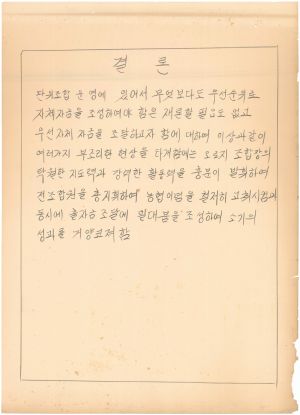 결론
단위조합 운영에 있어서 무엇보다도 우선순위로
자체자금을 조성하여야 함은 재론할 필요도 없고
우선자체 자금을 조달하고자 함에 대하여 이상과같이
여러가지 부조리한 현상을 타개함에는 오로지 조합장의
탁월한 지도력과 강력한 활동력을 충분이 발휘하여
전조합원을 총지휘하여 농협이념을 철저히 고취시킴과
동시에 출자금 조달에 일대 붐을 조성하여 소기의
성과를 거양코져 함